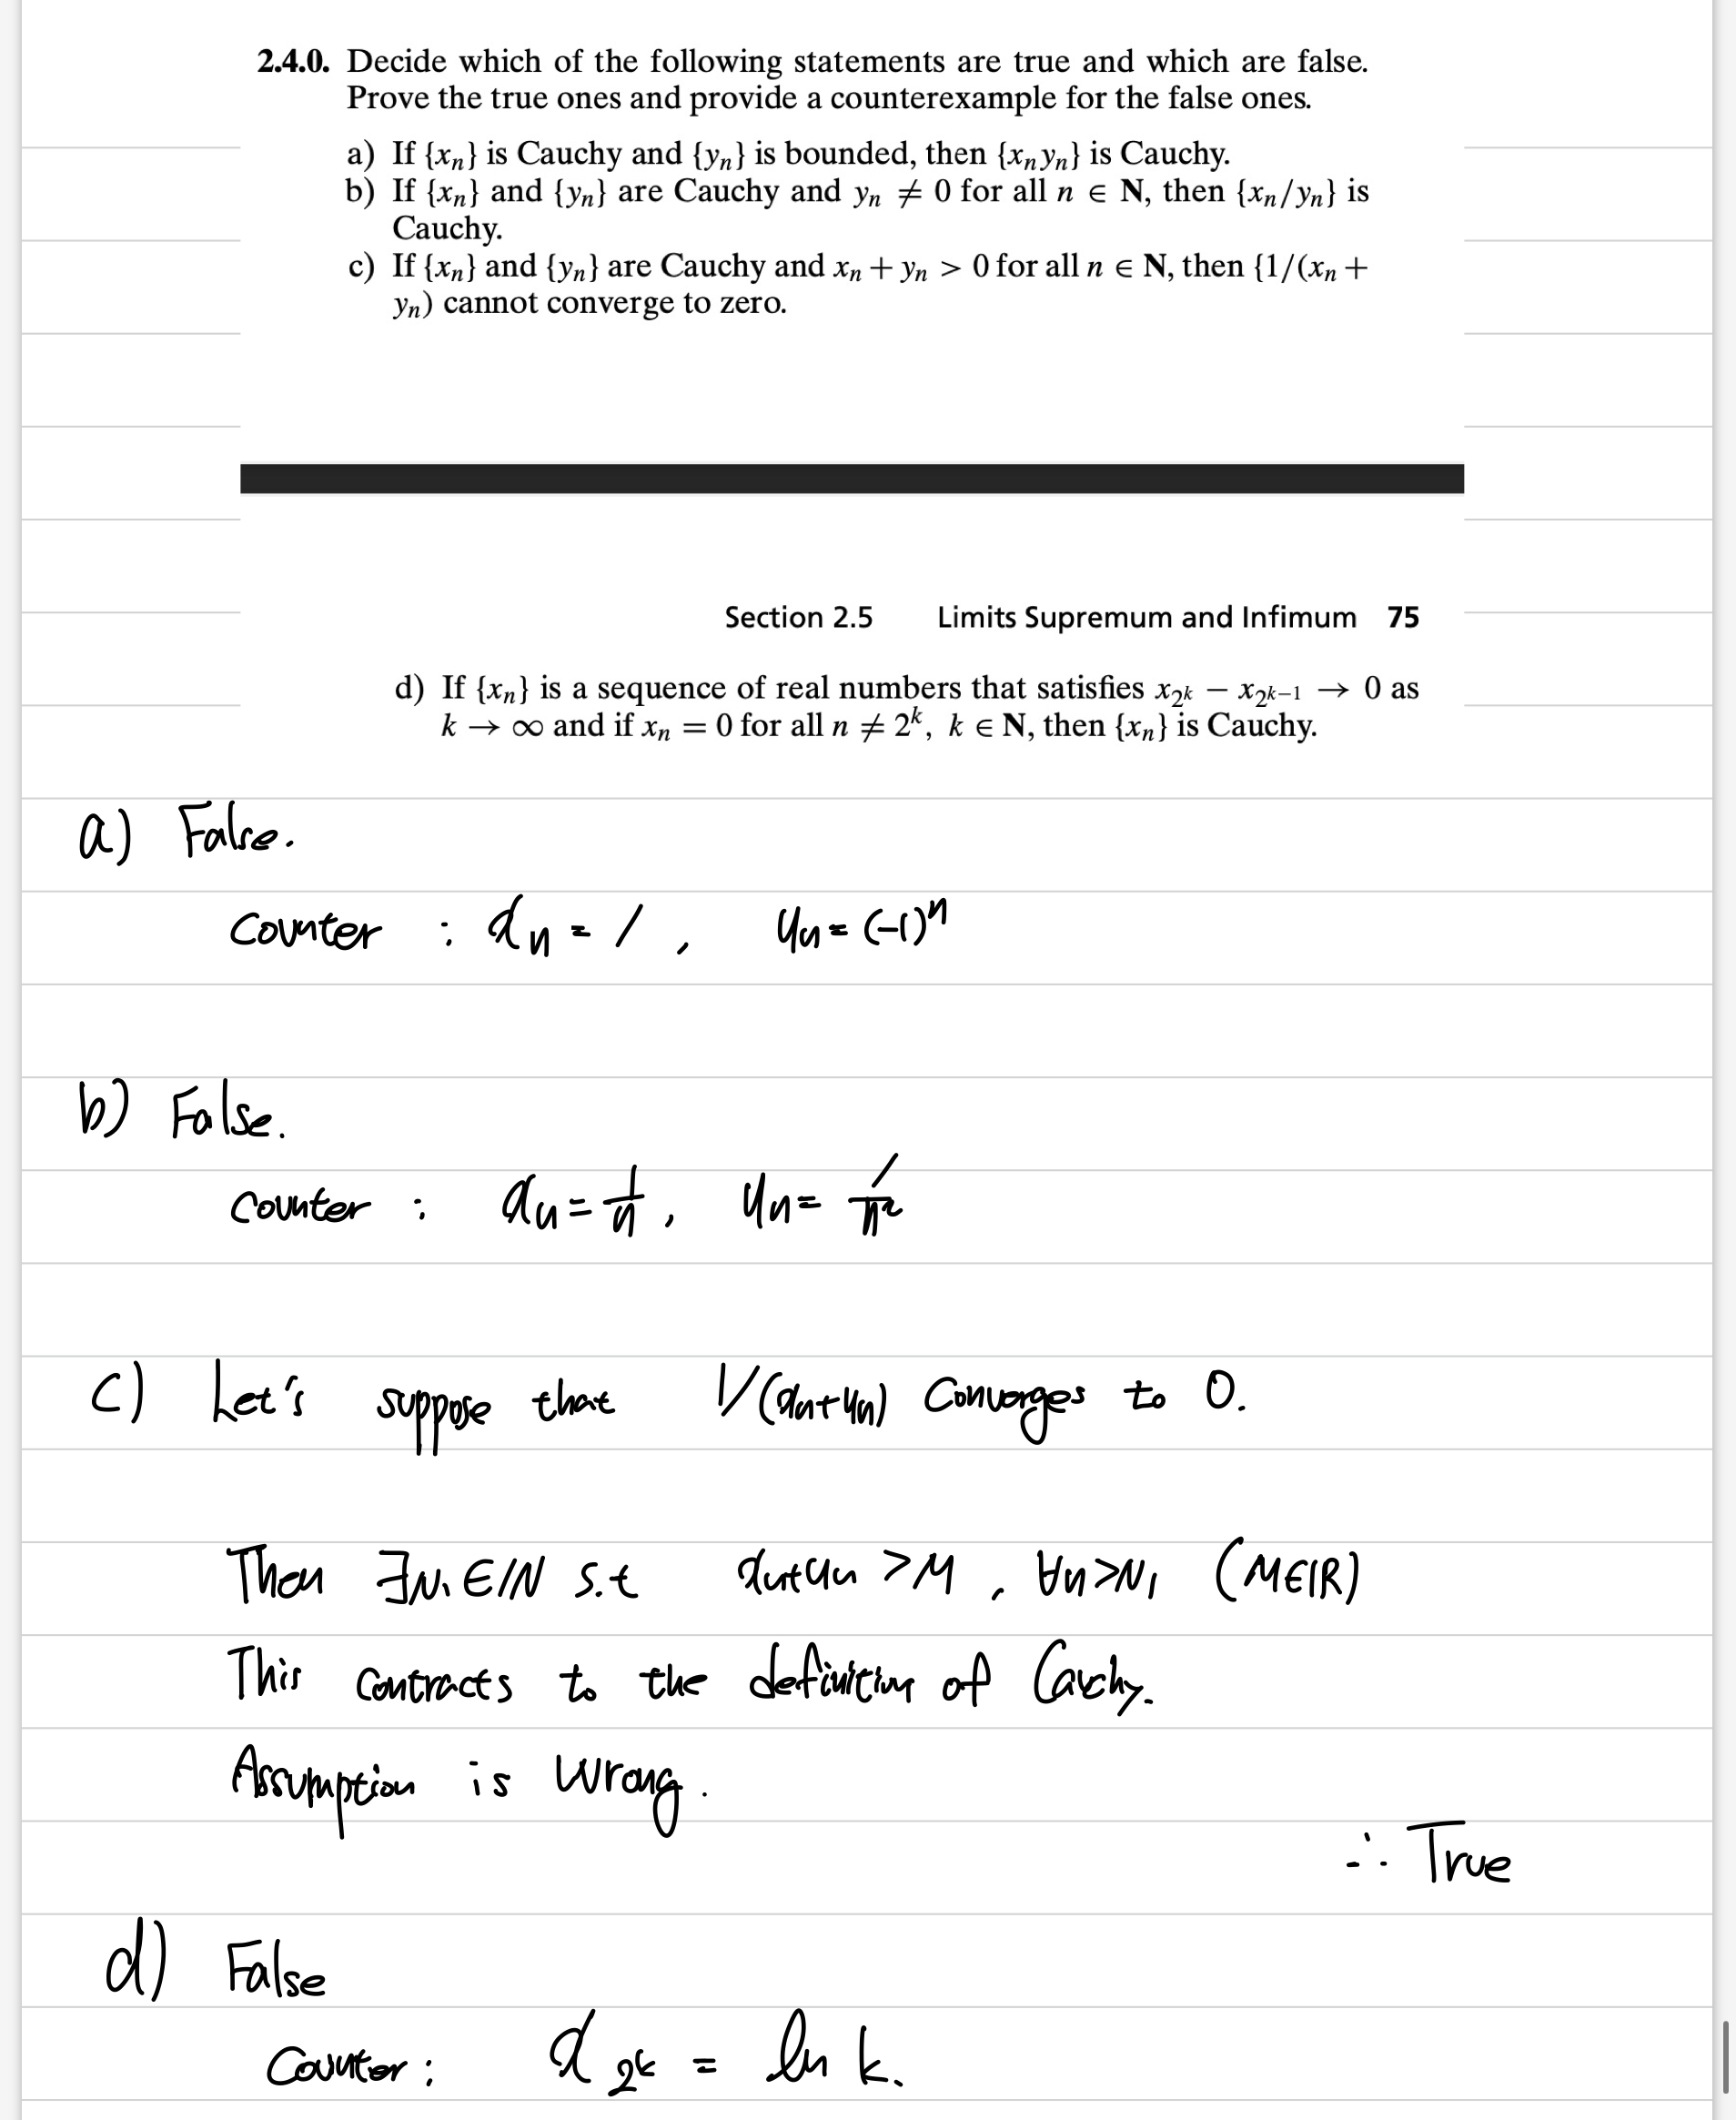 2.4.0. Decide which of the following statements are true and which are false.
Prove the true ones and provide a counterexample for the false ones.
a) If {xₙ} is Cauchy and {yₙ} is bounded, then {xₙyₙ} is Cauchy.
b) If {xₙ} and {yₙ} are Cauchy and yₙ ≠ 0 for all n ∈ N, then {xₙ/yₙ} is
Cauchy.
c) If {xₙ} and {yₙ} are Cauchy and xₙ + yₙ > 0 for all n ∈ N, then {1/(xₙ +
yₙ) cannot converge to zero.
Section 2.5 Limits Supremum and Infimum 75
d) If {xₙ} is a sequence of real numbers that satisfies x_{2^k} − x_{2^{k−1}} → 0 as
k → ∞ and if xₙ = 0 for all n ≠ 2^k, k ∈ N, then {xₙ} is Cauchy.
a) False.
counter : xₙ = 1, yₙ = (-1)ⁿ
b) False.
counter : xₙ = 1/n, yₙ = 1/n²
c) Let's suppose that 1/(xₙ+yₙ) converges to 0.
Then ∃N₁∈ℕ s.t xₙ+yₙ >M, ∀n>N₁ (M∈ℝ)
This contracts to the definition of Cauchy.
Assumption is wrong.
∴ True
d) False
Counter: x_{2^k} = ln k.